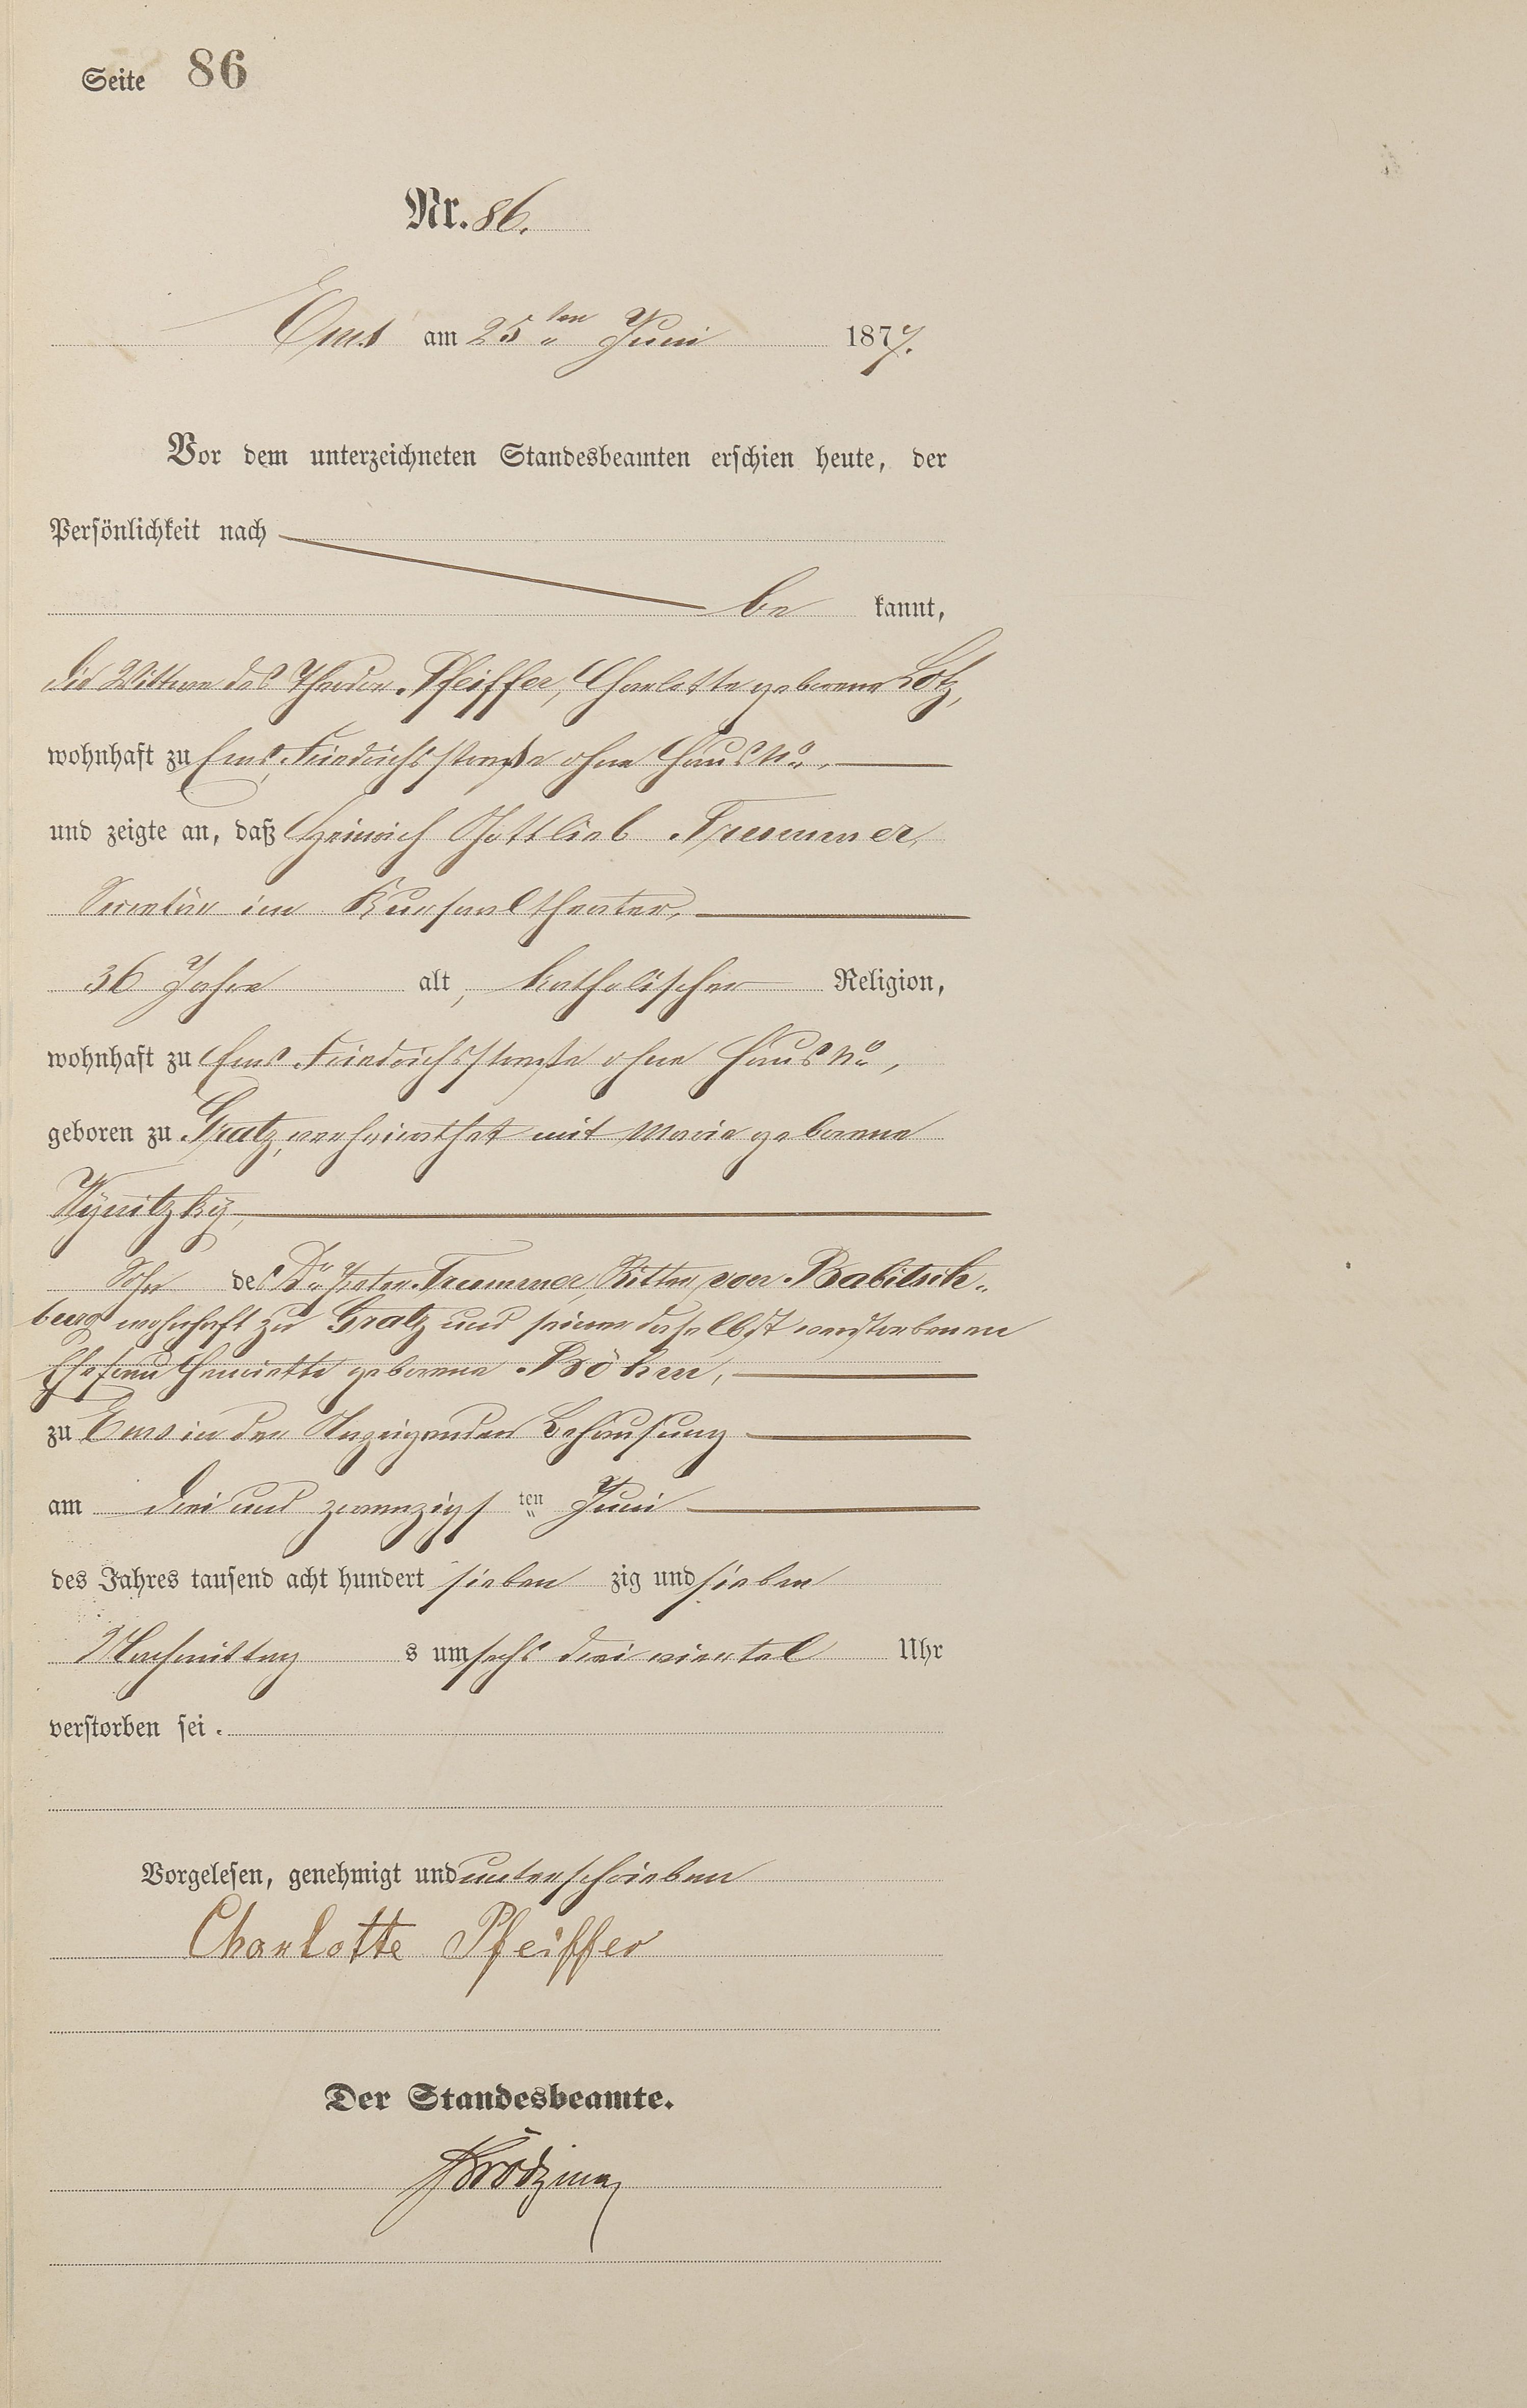 Seite 86
Nr. 86.
Ems am 25ten Juni 1877.
Vor dem unterzeichneten Standesbeamten erschien heute, der
Persönlichkeit nach
be kannt,
die Wittwe des Theodor Pfeiffer, Charlotte geborene Lotz,
wohnhaft zu Ems, Friedrichsstraße ohne Haus No.
und zeigte an, daß Heinrich Gottlieb Trummer,
Secretär im Kursaaltheater,
36 Jahre alt, katholischer Religion,
wohnhaft zu Ems Friedrichsstraße ohne Haus No,
geboren zu Gratz, verheirathet mit Marie geborene
Sohn des Dr. Peter Trummer, Ritter von Babitsch-
berg wohnhaft zu Gratz und seiner daselbst verstorbenen
Ehefrau Henriette geborene Böhm,
zu Ems in der Anzeigenden Behausung
am drei und zwanzigsten Juni
des Jahres tausend acht hundert sieben zig und sieben
Nachmittag s um sechs drei viertel Uhr
verstorben sei.
Vorgelesen, genehmigt und unterschrieben
Charlotte Pfeiffer
Der Standesbeamte.